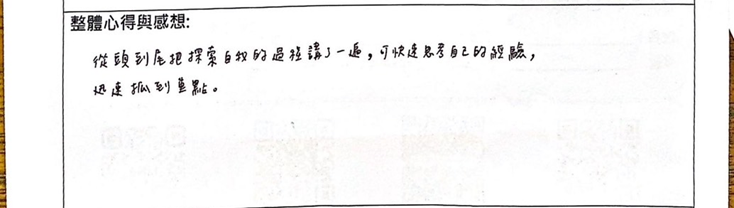 整體心得與感想:
從頭到尾把探索自我的過程講了一遍，可快速思考自己的經驗，
迅速抓到重點。